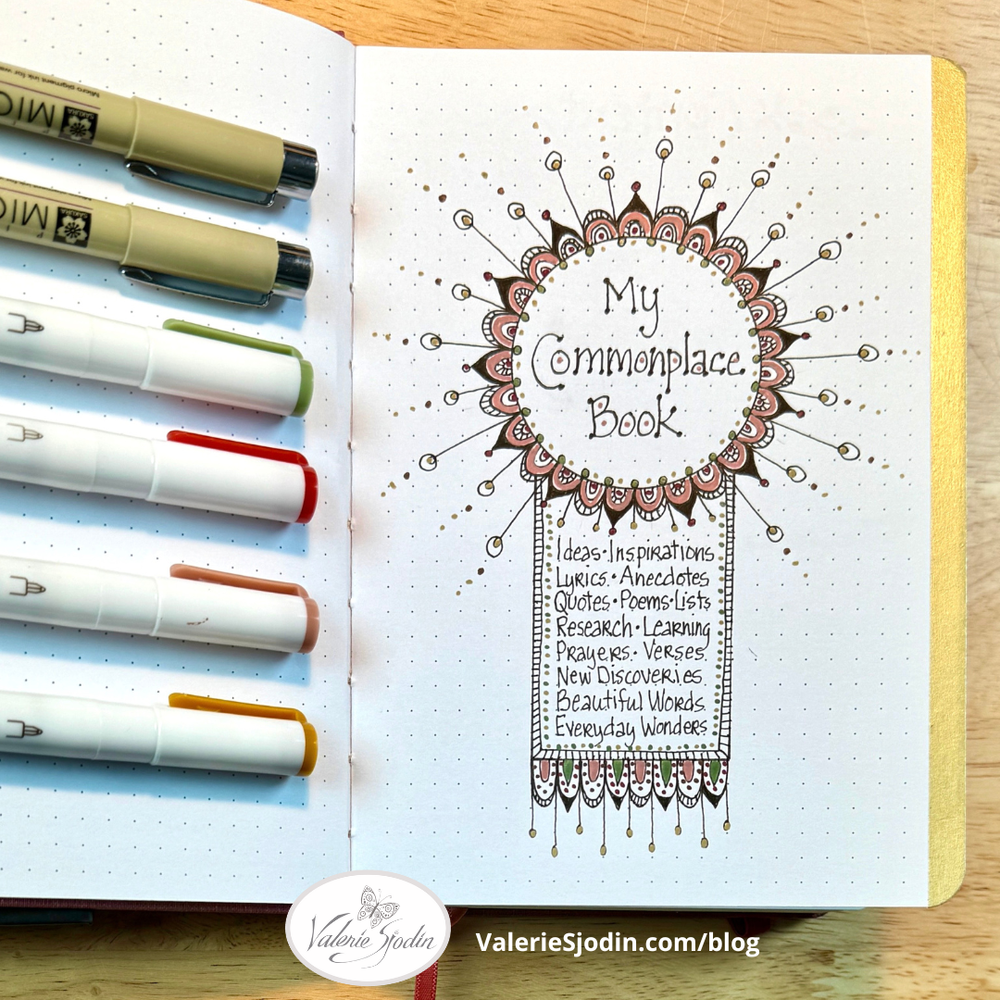 Micro pigment ink for
MIC
MIC
My
Commonplace
Book
Ideas•Inspirations
Lyrics•Anecdotes
Quotes•Poems•Lists
Research•Learning
Prayers•Verses
New Discoveries
Beautiful Words
Everyday Wonders
Valerie Sjodin
ValerieSjodin.com/blog